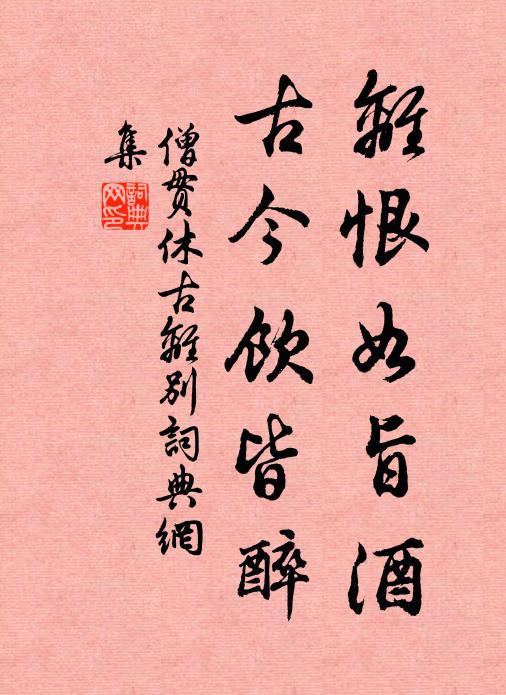 離恨如旨酒
古今飲皆醉
僧貫休古離別詞典網
集
詞典
网印